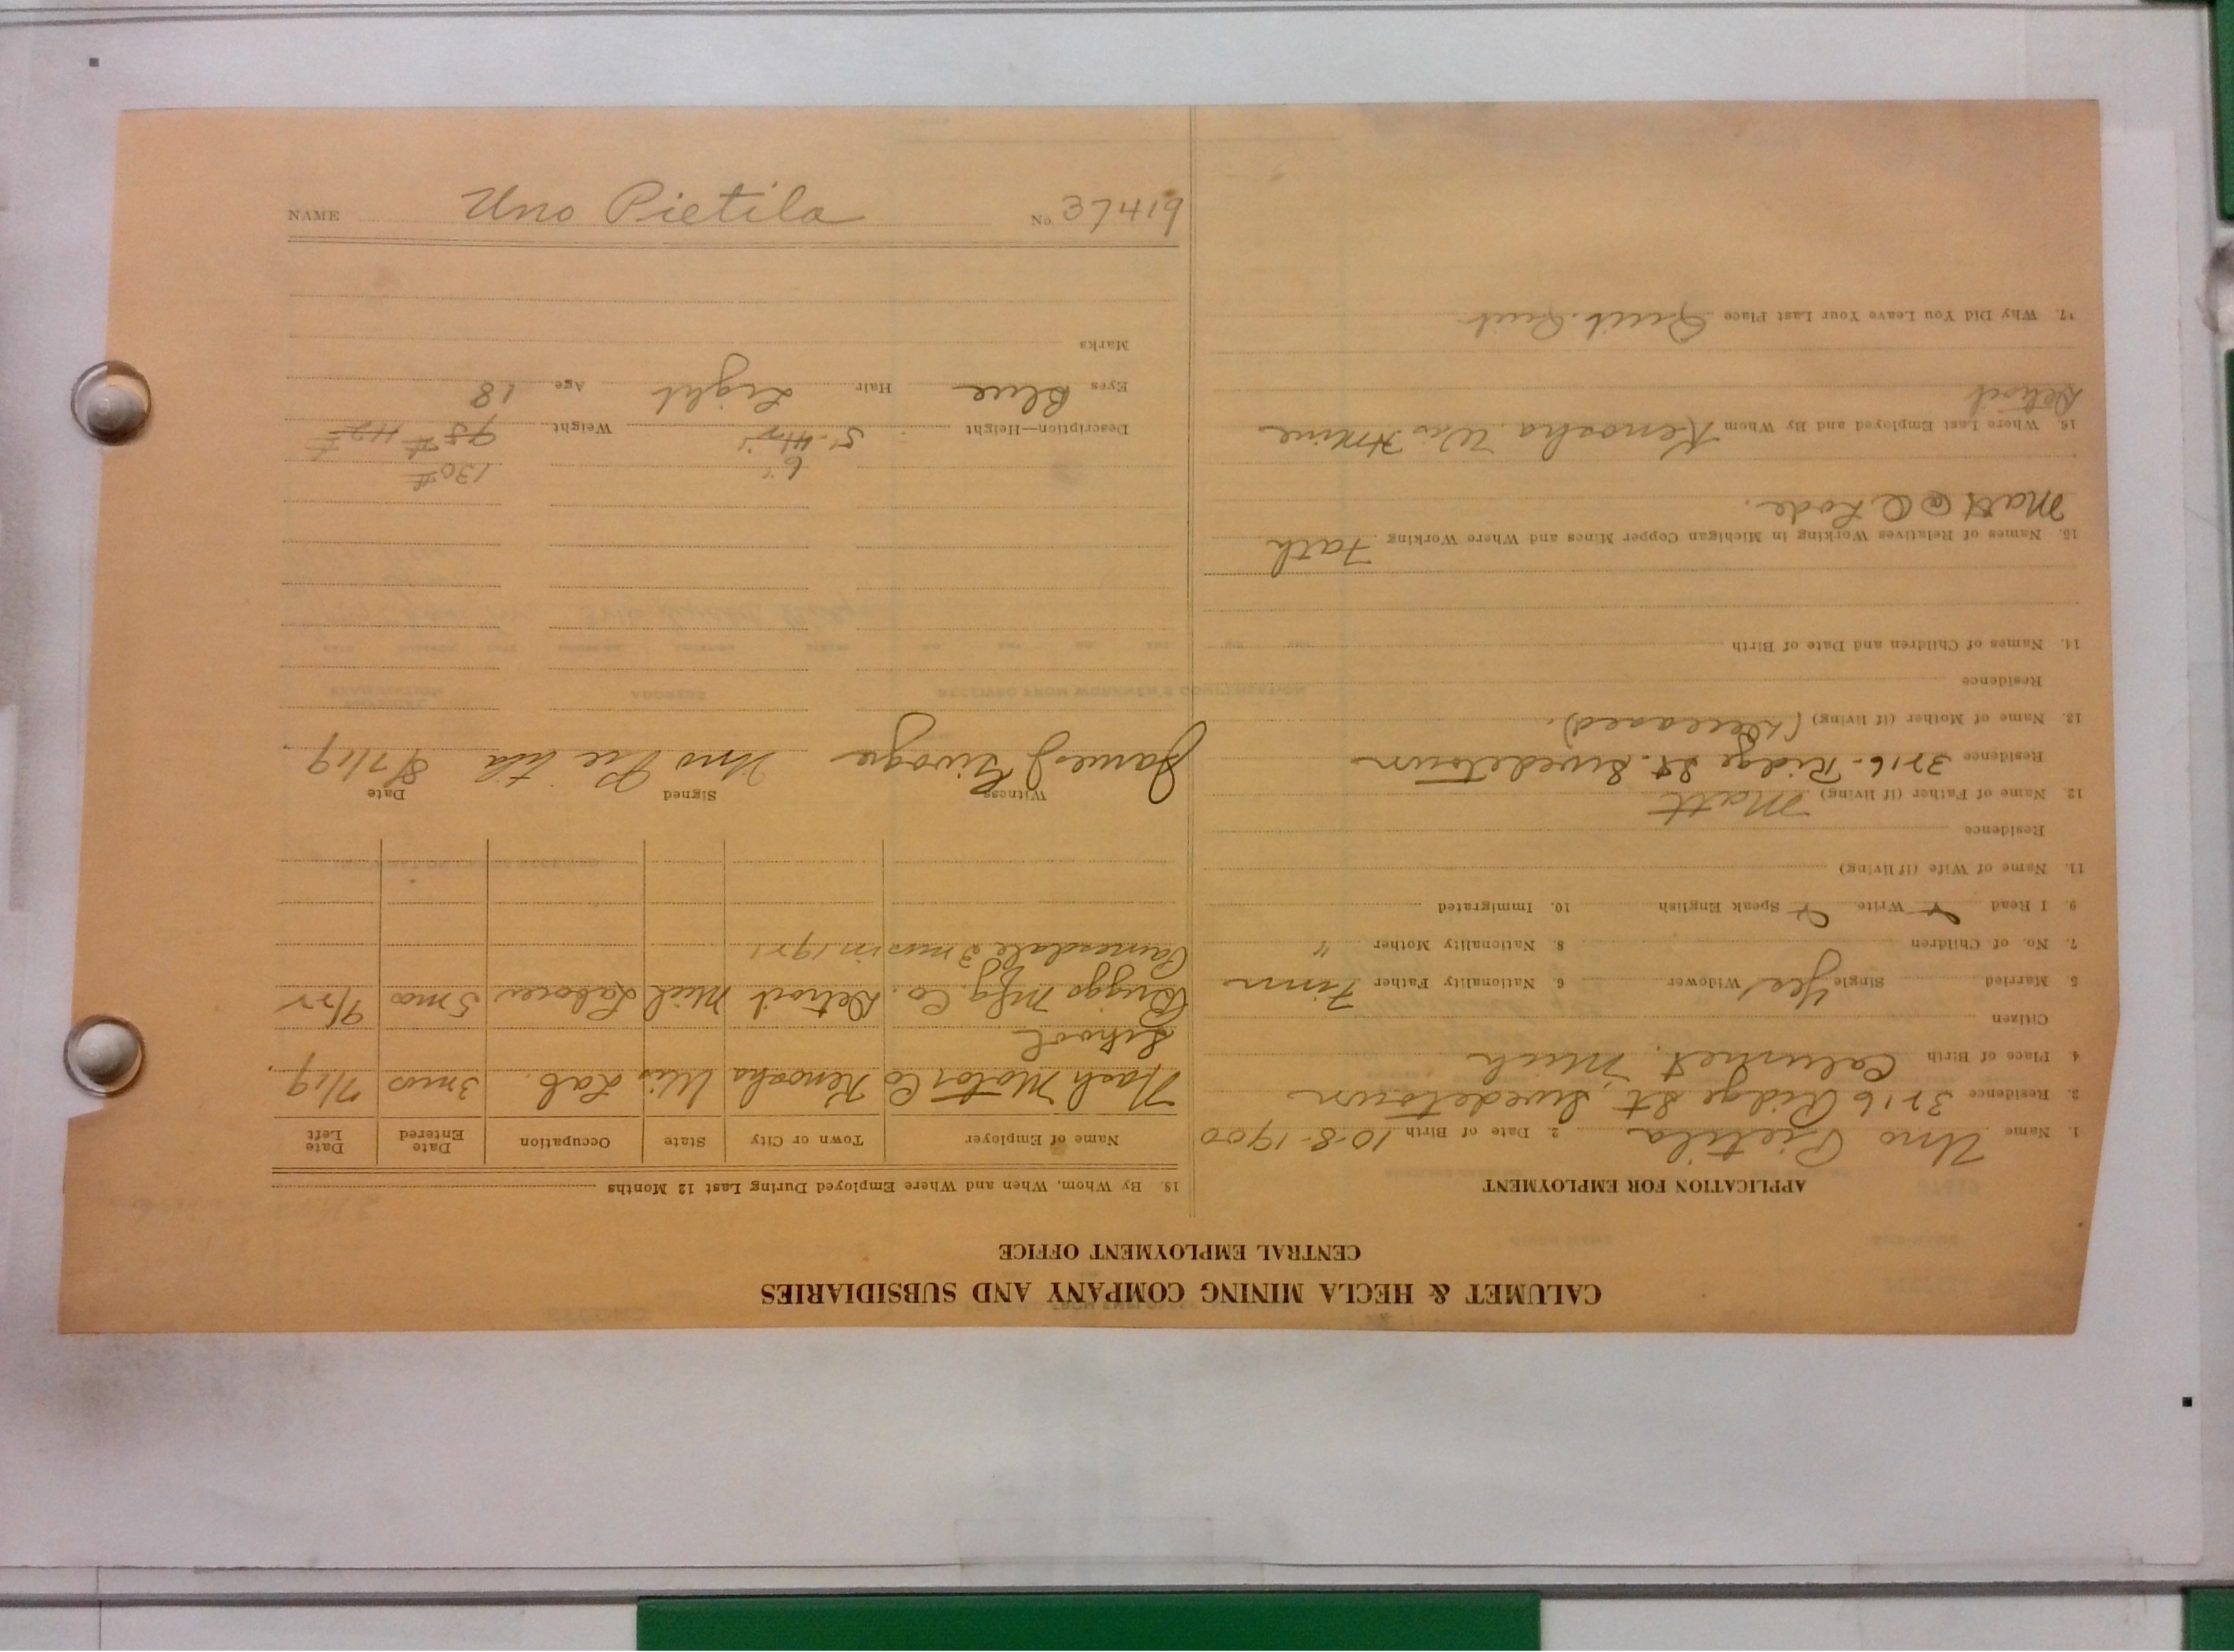 CALUMET & HECLA MINING COMPANY AND SUBSIDIARIES
CENTRAL EMPLOYMENT OFFICE
APPLICATION FOR EMPLOYMENT
1. Name Uno Pietila 2. Date of Birth 10-8-1900
2. Residence 3216 Ridge St. Swedetown
4. Place of Birth Calumet, Mich
Citizen
5. Married Single Yes Widower 6. Nationality Father Finn
7. No. of Children 8. Nationality Mother "
9. I Read Write Speak English 10. Immigrated
11. Name of Wife (if living)
Residence
12. Name of Father (if living) Matt
Residence 3216 - Ridge St. Swedetown
13. Name of Mother (if living) (Deceased).
Residence
14. Names of Children and Date of Birth
15. Names of Relatives Working in Michigan Copper Mines and Where Working Fath
Matt @ C Lode.
16. Where Last Employed and By Whom Kenosha Wis
Detroit
17. Why Did You Leave Your Last Place Quit. Quit
18. By Whom, When and Where Employed During Last 12 Months
Name of Employer Town or City State Occupation Date Entered Date Left
Nash Motor Co Kenosha Wis Lab. 3 mos 7/19
School
Briggs Mfg. Co. Detroit Mich Laborer 5 mos 9/22
Painesdale 3 mos in 1921
Witness Signed Date
James Uno Pietila 8/7/19
6" 130#
Description—Height 5'-4½" Weight 95# 112#
Eyes Blue Hair Light Age 18
Marks
NAME Uno Pietila No. 37419